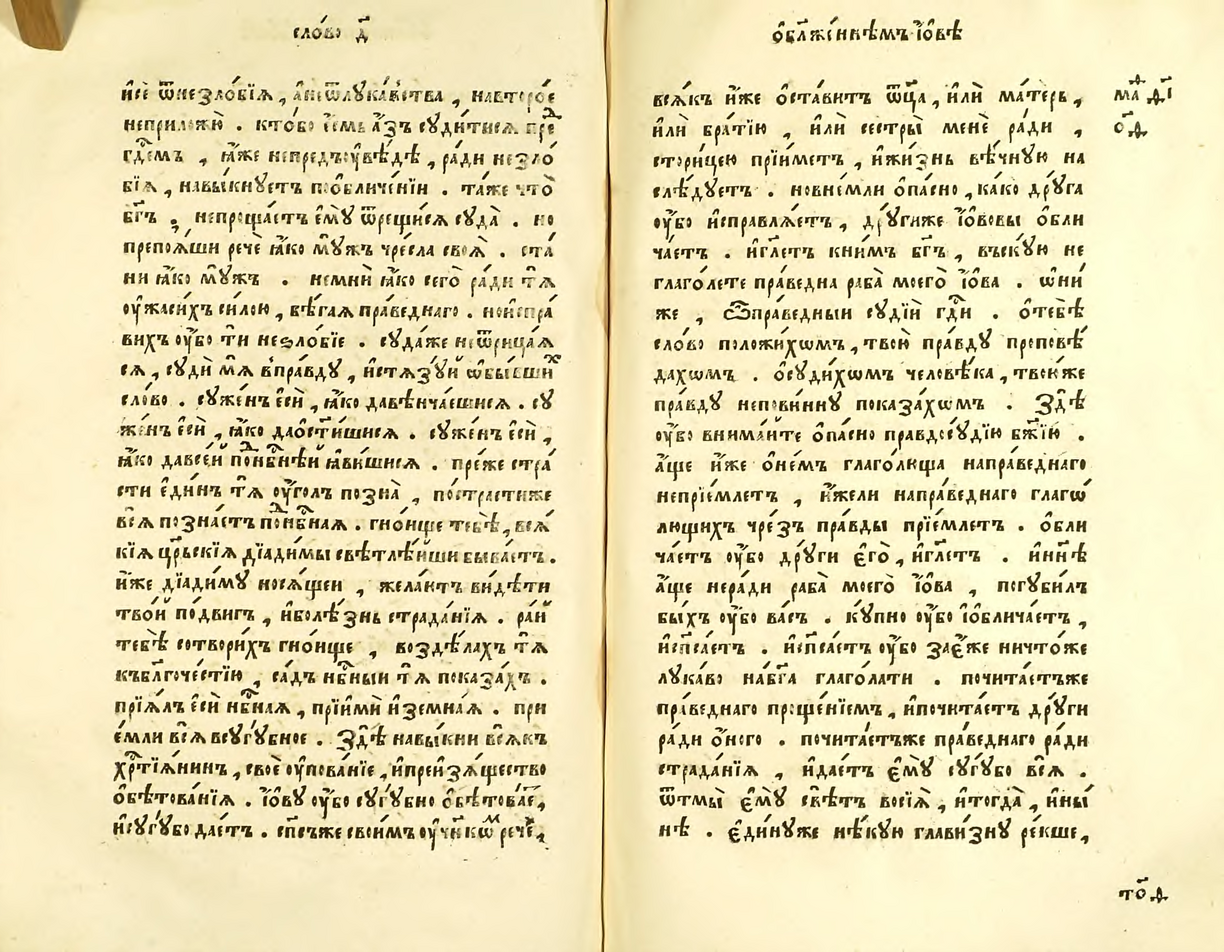 сло́во д҃
и҆сѐ ѿнезло́бїѧ , а҆ниѿлꙋка́вства , навторо́е
неприложꙋ̀ . кто́бо є҆́смь а҆́зъ сꙋди́тисѧ пре
гд҇емъ , ꙗ҆́же непредъꙋвѣ́дѣ , ради незло́
бїѧ , навы́кнꙋетъ пообличе́нїи . та́же что̀
бг҃ъ , непроща́етъ є҆мꙋ̀ ѿрещи́сѧ сꙋда̀ . но
препоѧ́ши речѐ ꙗ҆́ко мꙋ́жъ чре́сла своѧ̀ . ста́
ни ꙗ҆́ко мꙋ́жъ . немнѝ ꙗ҆́ко сего̀ ра́ди тѧ̀
оу҆жаси́хъ си́лою , бѣ́гаѧ пра́веднаго . ноиспра́
вихъ оу҆́бо ти незло́бїе . сꙋда́же неѿрица́ѧ
сѧ , сꙋдѝ мѧ̀ впра́вдꙋ , и҆стѧзꙋ́й ѡ҆бы́вши
сло́во . сꙋ́женъ є҆сѝ , ꙗ҆́ко давѣнча́ешисѧ . сꙋ́
женъ є҆сѝ , ꙗ҆́ко даѡ҆сти́шисѧ . сꙋ́женъ є҆сѝ ,
ꙗ҆́ко давсе́й поⷣнб҇нѣй ꙗ҆ви́шисѧ . пре́же стра́
сти є҆ди́нъ тѧ̀ оу҆́голъ позна̀ , пострастиже
всѧ̀ познае́тъ поⷣнб҇наѧ . гно́ище тебѣ̀ , всѧ́
кїѧ цр҇скїѧ дїади́мы свѣтлѣ́йши быва́етъ .
и҆́же дїади́мꙋ носѧ́щеи , жела́ютъ ви́дѣти
тво́й по́двигъ , и҆болѣ́знь страда́нїѧ . ра́й
тебѣ̀ сотвори́хъ гно́ище , воздѣ́лахъ тѧ̀
къбл҃гоче́стїю , са́дъ нб҇ныи тѧ̀ показа́хъ .
прїѧ́лъ є҆сѝ нб҇наѧ , прїимѝ и҆земна́ѧ . прі
е́мли всѧ̀ всꙋгꙋ́бное . Здѣ̀ навы́кни всѧ́къ
хр҇тїѧ́нинъ , своѐ оу҆пова́нїе , и҆преизѧ́щество
ѻ҆бѣтова́нїѧ . І҆́овꙋ оу҆́бо сꙋгꙋ́бно ѻ҆бѣтова́е ,
и҆сꙋгꙋ́бо дае́тъ . сп҃съже свои́мъ оу҆чн҃кѡⷨ речѐ ,
ѻ҆бл҃же́ннѣмъ І҆́овѣ
всѧ́къ и҆́же ѻ҆ста́витъ ѿц҃а , и҆лѝ ма́терь ,
и҆лѝ бра́тїю , и҆лѝ сестры̀ менѐ ра́ди ,
стори́цею прїи́метъ , и҆жи́знь вѣ́чнꙋю на
слѣ́дꙋетъ . новне́мли ѻ҆па́сно , ка́ко дрꙋ́га
оу҆́бо и҆справлѧ́етъ , дрꙋ́гиже І҆́ововы ѻ҆бли
ча́етъ . и҆гл҃етъ кни́мъ бг҃ъ , въскꙋ́ю не
глаго́лете пра́ведна раба̀ моего̀ І҆́ова . ѡ҆ни́
же , Ѽпра́ведныи сꙋдїѝ гд҇и . ѻ҆тебѣ̀
сло́во положи́хомъ , твою̀ пра́вдꙋ проповѣ́
дахомъ . ѻ҆сꙋди́хомъ человѣ́ка , твою́же
пра́вдꙋ непови́ннꙋ показа́хомъ . Здѣ̀
оу҆́бо внима́йте ѻ҆па́сно правдосꙋ́дїю бж҃їю .
а҆́ще и҆́же ѻ҆не́мъ глаго́люща напра́веднаго
непрїе́млетъ , и҆́жели напра́веднаго глагѡ́
лющихъ чре́зъ пра́вды прїе́млетъ . ѻ҆бли
ча́етъ оу҆́бо дрꙋ́ги є҆го̀ , и҆гл҃етъ . и҆ни́нѣ
а҆́ще неради раба̀ моего̀ І҆́ова , погꙋби́лъ
бы́хъ оу҆́бо ва́съ . кꙋ́пно оу҆́бо І҆ѻблича́етъ ,
и҆сп҃са́етъ . и҆сп҃са́етъ оу҆́бо зае҆́же ничто́же
лꙋка́во наб҃га глаго́лати . почита́етъже
пра́веднаго проще́нїемъ , и҆почита́етъ дрꙋ́ги
ра́ди ѻ҆́ного . почита́етъже пра́веднаго ра́ди
страда́нїѧ , и҆дае́тъ є҆мꙋ̀ сꙋгꙋ́бо всѧ̀ .
ѿтмы̀ є҆мꙋ̀ свѣ́тъ восїѧ̀ , и҆тогда̀ , и҆ны́
нѣ . є҆ди́нꙋже нѣ́кꙋю глави́знꙋ ре́кше ,
маⷴ д҃і
ѻ҆д҃
то҃д